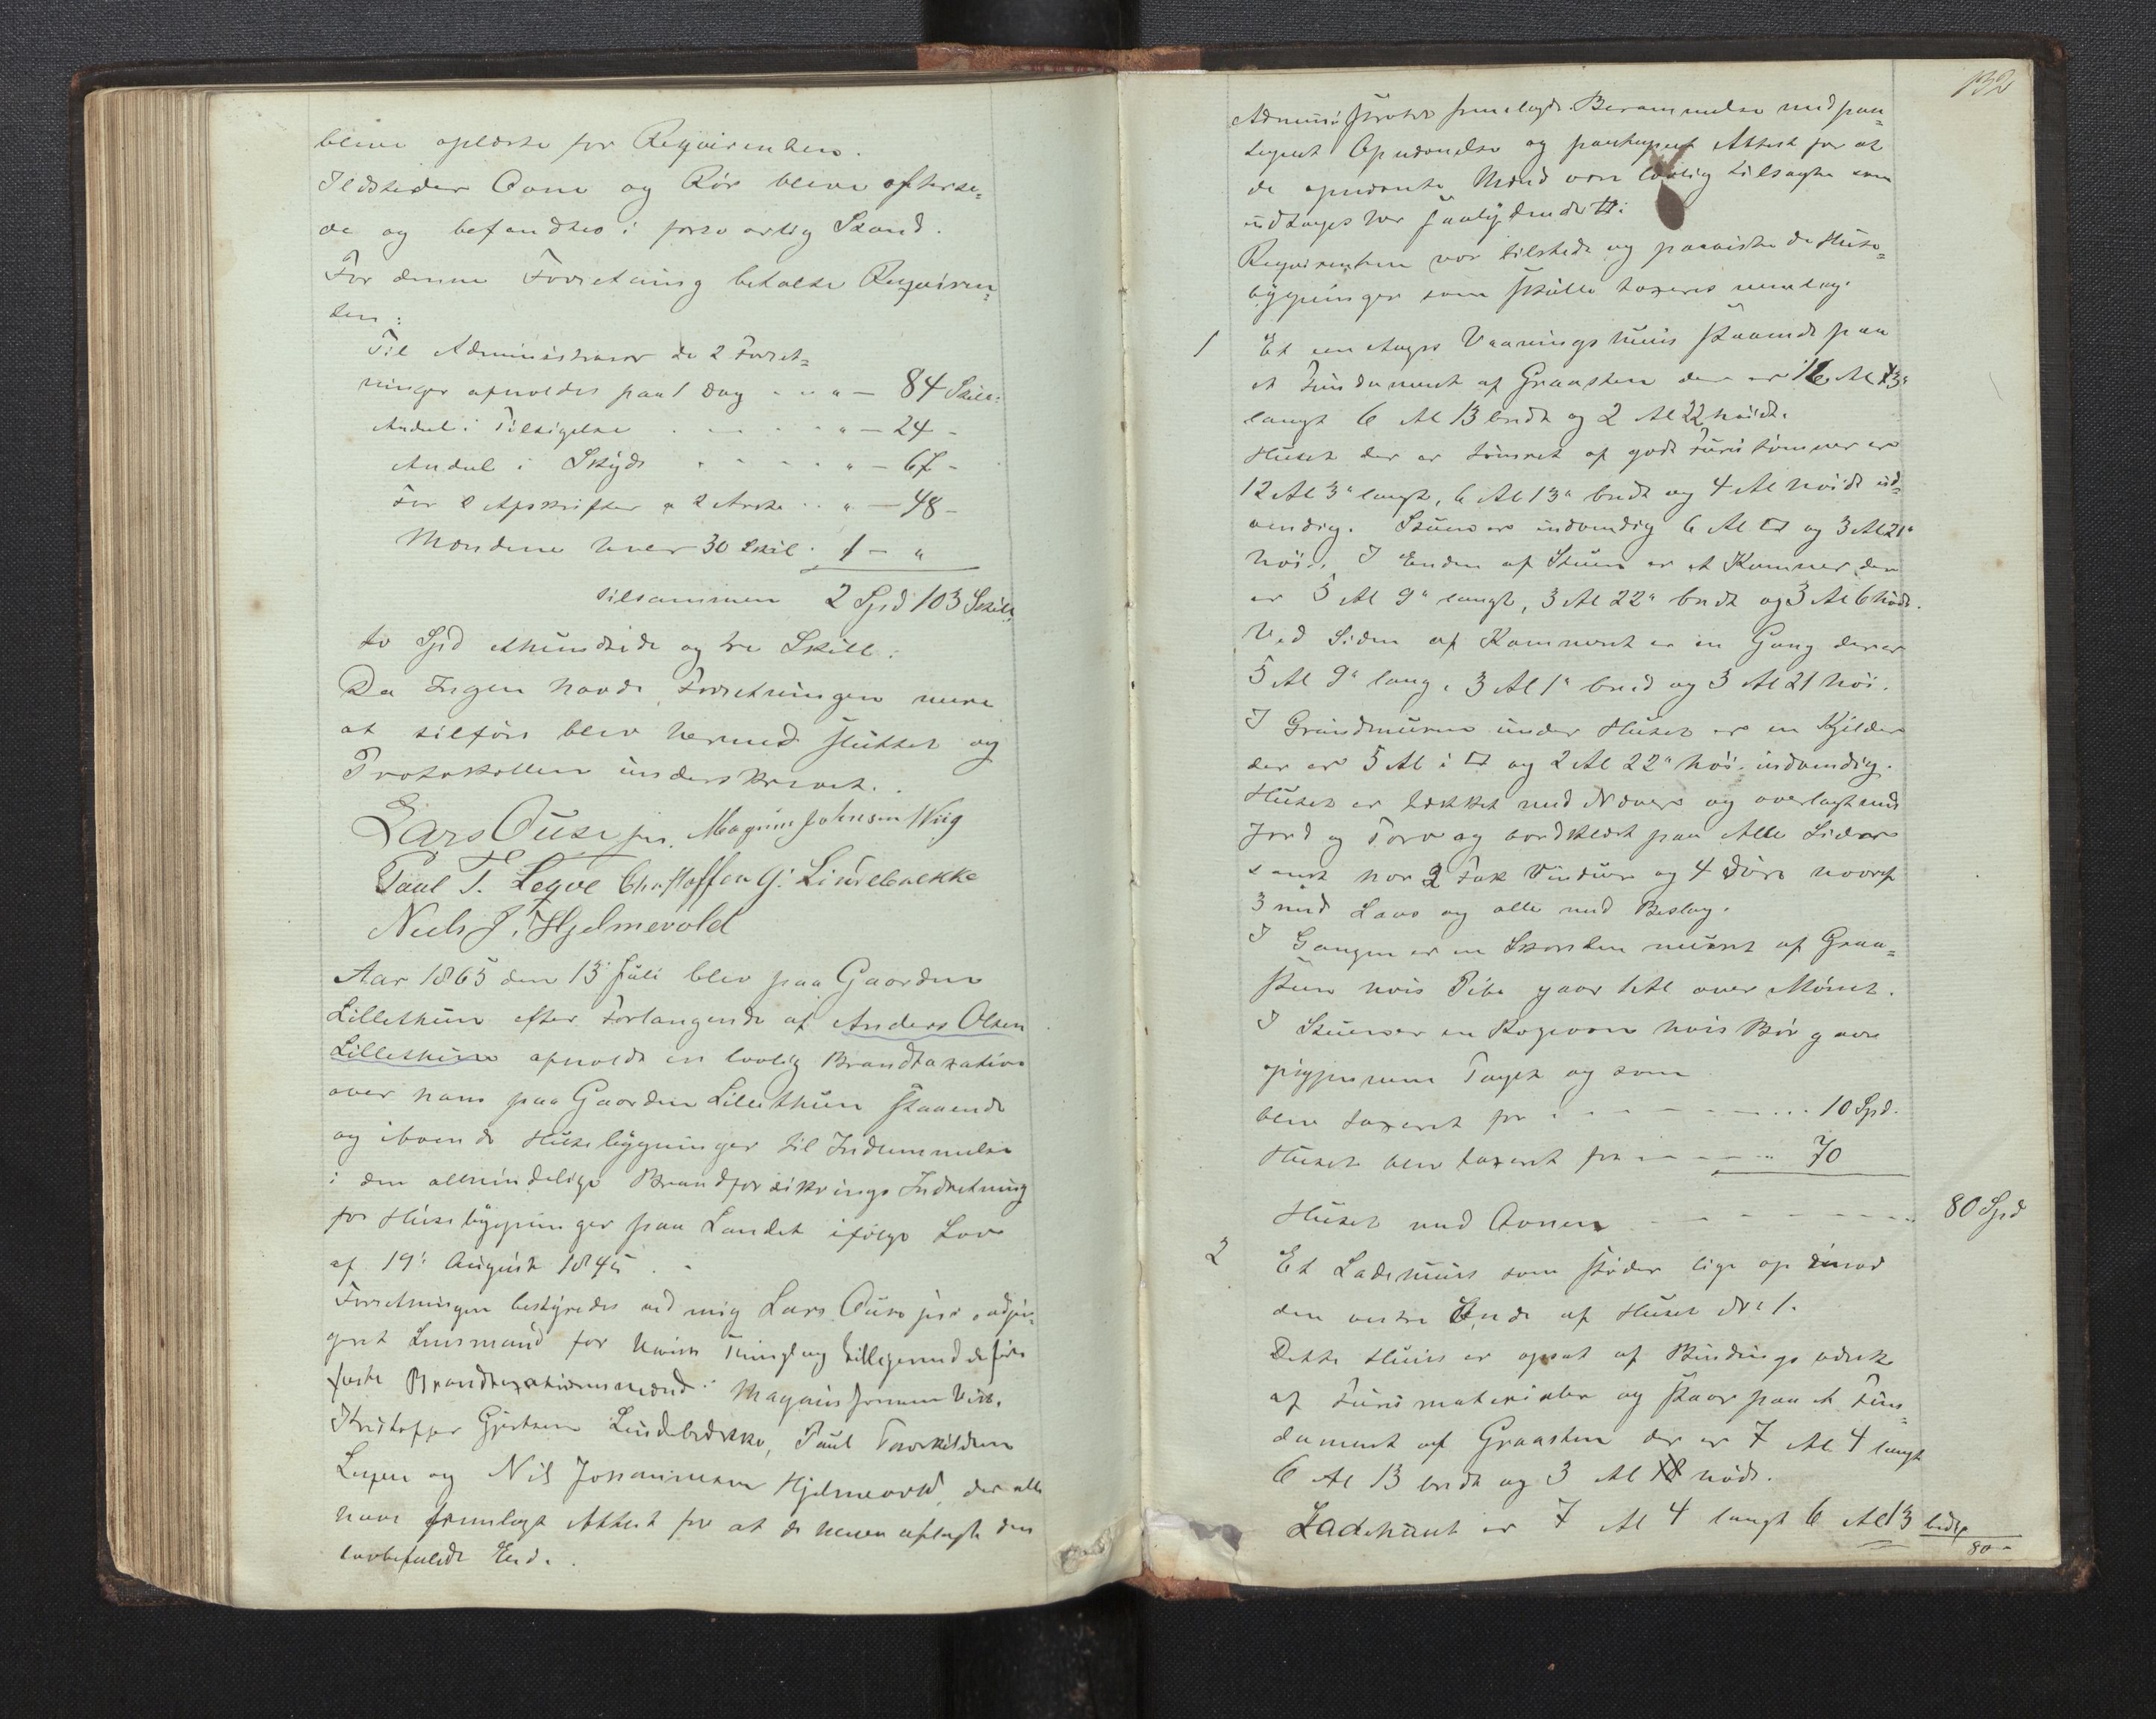 bleve oplæste for Reqvirenten.
Ildsteder Ovne og Rör bleve efterse-
de og befandtes i forsvarlig Stand.
For denne Forretning betalte Reqviren-
ten:
Til Administrator de 2 Forret-
ninger afholdes paa 1 Dag . . " — 84 Skill:
Andel i Tilsigelse . . . . " — 24 -
Andel i Skyds . . . . " — 67 -
For 2 Afskrifter a 2 Arke . . " — 48 -
Mændene hver 30 Skil. 1 — "
tilsammen 2 Spd 103 Skill:
to Spd ethundrede og tre Skill:
Da Ingen havde Forretningen mere
at tilföre blev hermed sluttet og
Protokollen underskrevet.
Lars Ouse jnr. Magnus Johnsen Wiig
Paul T. Legve Christoffer G: Lindebrekke
Niels J. Hjelmevold
Aar 1865 den 13 Juli blev paa Gaarden
Lillethun efter Forlangende af Anders Olsen
Lillethun afholdt en lovlig Brandtaxation
over hans paa Gaarden Lillethun staaende
og iboende Husebygninger til Indlemmelse
i den almindelige Brandforsikrings Indretning
for Husebygninger paa Landet ifölge Lov
af 19: August 1845.
Forretningen bestyredes ved mig Lars Ouse jnr. adjun-
geret Lensmand for Hwins Thinglag tilligemed de fire
faste Brandtaxationsmænd: Magnus Jonsen Viik,
Kristoffer Gjertsen Lindebrække, Paul Torkildsen
Legve og Nils Johannesen Hjelmevold, der alle
have fremlagt Attest for at de have aflagt den
lovbefalede Eed.
132
Administrator fremlagde Berammelse med paa-
tegnet Opnævnelse og paategnet Attest for at
de opnævnte Mænd vare lovlig tilsagte som
udtages her saalydende:
Reqvirenten var tilstede og paaviste de Huse-
bygninger som skulle taxeres nemlig.
1 Et een etages Vaaningshuus staaende paa
et Fundament af Graasten der er 16 Al 13"
langt 6 Al 13 bredt og 2 Al 22 höidt.
Huset der er tömret af godt Furutömmer er
12 Al 3" langt, 6 Al 13" bredt og 4 Al höidt ud-
vendig. Stuen er indvendig 6 Al □ og 3 Al 21"
höi. I Enden af Stuen er et Kammer der
er 5 Al 9" langt, 3 Al 22" bredt og 3 Al 6 höit.
Ved Siden af Kammeret er en Gang der er
5 Al 9" lang, 3 Al 1" bred og 3 Al 21 höi.
I Grundmuren under Huset er en Kjelder
der er 5 Al i □ og 2 Al 22" höi indvendig.
Huset er tækket med Næver og overlagt med
Jord og Torv og bordklædt paa Alle Sider
samt har 2 Fak Vinduer og 4 Döre hvoraf
3 med Laas og alle med Beslag.
I Gangen er en Skorsten muret af Graa-
steen hvis Pibe gaar 1 Al over Mönet.
I Stuen er en Kogeovn hvis Rör gaar
op igjennem Taget og som
blev taxeret for . . . . . . 10 Spd.
Huset blev taxeret for . . . . . 70
Huset med Ovnen . . . . . . 80 Spd
2 Et Ladehuus som stöder lige op imod
den vestre Ende af Huset No: 1.
Dette Huus er opsat af Bindingsværk
af Furumaterialer og staar paa et Fun-
dament af Graasten der er 7 Al 4 langt
6 Al 13 bredt og 3 Al höit.
Ladehuset er 7 Al 4 langt 6 Al 13 bredt
80 -